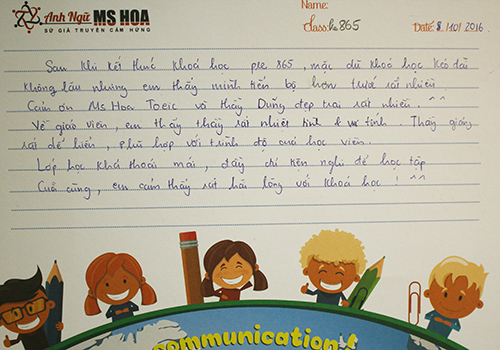 Anh Ngữ MS HOA
SỨ GIẢ TRUYỀN CẢM HỨNG
Name:
Class: pre 865
Date: 8/10/2016.
Sau khi kết thúc khoá học pre 865, mặc dù khoá học kéo dài
không lâu nhưng em thấy mình tiến bộ hơn trước rất nhiều.
Cảm ơn Ms Hoa Toeic và thầy Dũng đẹp trai rất nhiều. ^^
Về giáo viên, em thấy thầy rất nhiệt tình & vui tính. Thầy giảng
rất dễ hiểu, phù hợp với trình độ của học viên.
Lớp học khá thoải mái, đầy đủ tiện nghi để học tập
Cuối cùng, em cảm thấy rất hài lòng với khoá học! ^^
communication!